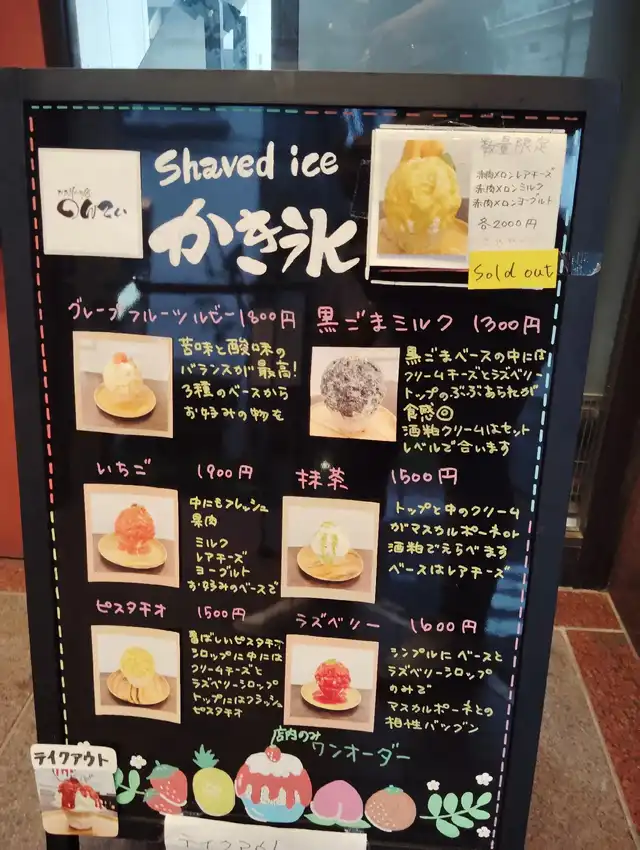 Shaved ice
かき氷
のんてぃ
数量限定
赤肉メロンレアチーズ
赤肉メロンミルク
赤肉メロンヨーグルト
各2000円
Sold out
グレープフルーツルビー1800円
苦味と酸味の
バランスが最高!
3種のベースから
お好みの物を
黒ごまミルク 1300円
黒ごまベースの中には
クリームチーズとラズベリー
トップのぶぶあられが
食感◎
酒粕クリームはセット
レベルで合います
いちご 1900円
中にもフレッシュ
果肉
ミルク
レアチーズ
ヨーグルト
お好みのベースで
抹茶 1500円
トップと中のクリーム
がマスカルポーネor
酒粕でえらべます
ベースはレアチーズ
ピスタチオ 1500円
香ばしいピスタチオ
シロップに中には
クリームチーズと
ラズベリーシロップ
トップにはクラッシュ
ピスタチオ
ラズベリー 1600円
シンプルにベースと
ラズベリーシロップ
のみで
マスカルポーネとの
相性バツグン
店内のみ
ワンオーダー
テイクアウト
テイクアウト